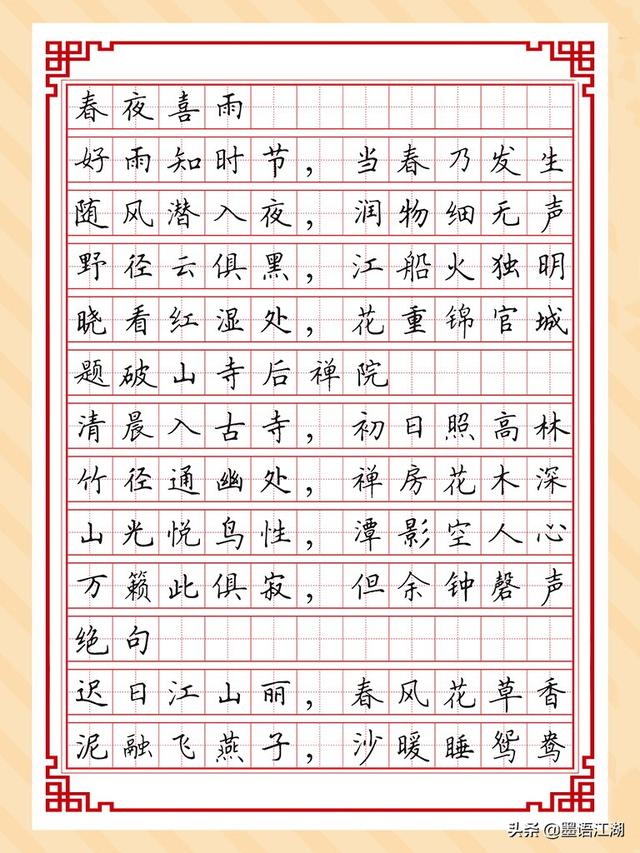 春夜喜雨
好雨知时节，当春乃发生
随风潜入夜，润物细无声
野径云俱黑，江船火独明
晓看红湿处，花重锦官城
题破山寺后禅院
清晨入古寺，初日照高林
竹径通幽处，禅房花木深
山光悦鸟性，潭影空人心
万籁此俱寂，但余钟磬声
绝句
迟日江山丽，春风花草香
泥融飞燕子，沙暖睡鸳鸯
头条 @墨语江湖